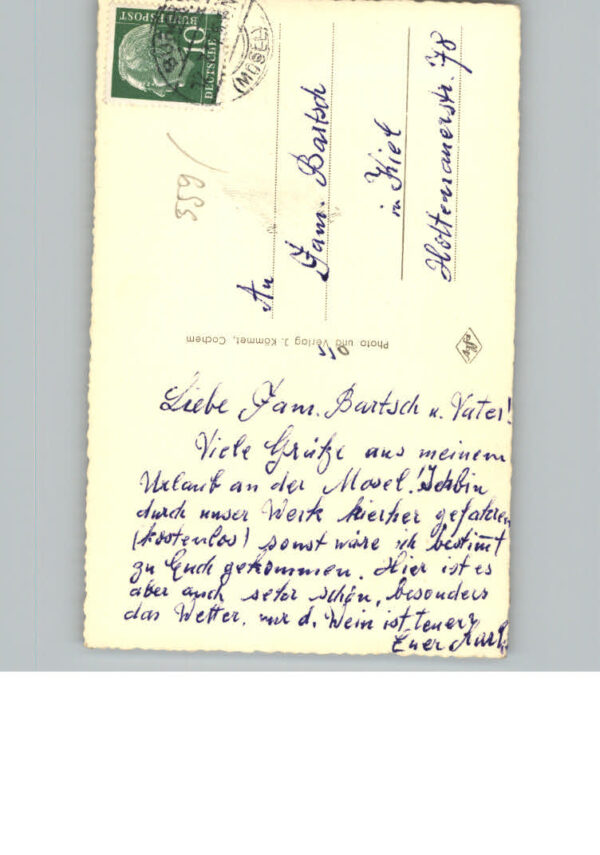 DEUTSCHE BUNDESPOST
10
(MOSEL)
359/
An
Fam. Bartsch
in Kiel
Holtenauerstr. 78
Photo und Verlag J. Kömmet, Cochem
Liebe Fam. Bartsch u. Vater!
Viele Grüße aus meinem
Urlaub an der Mosel. Ich bin
durch unser Werk hierher gefahren
(kostenlos) sonst wäre ich bestimmt
zu Euch gekommen. Hier ist es
aber auch sehr schön, besonders
das Wetter, nur d. Wein ist teuer
Euer